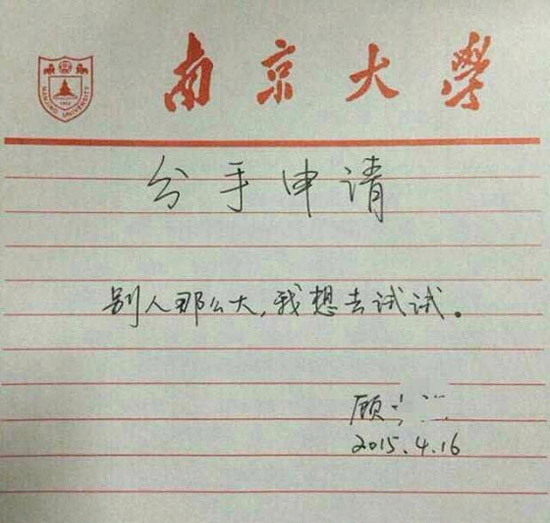 南京大學
NANJING UNIVERSITY
1902
分手申请
别人那么大,我想去试试。
顾
2015.4.16